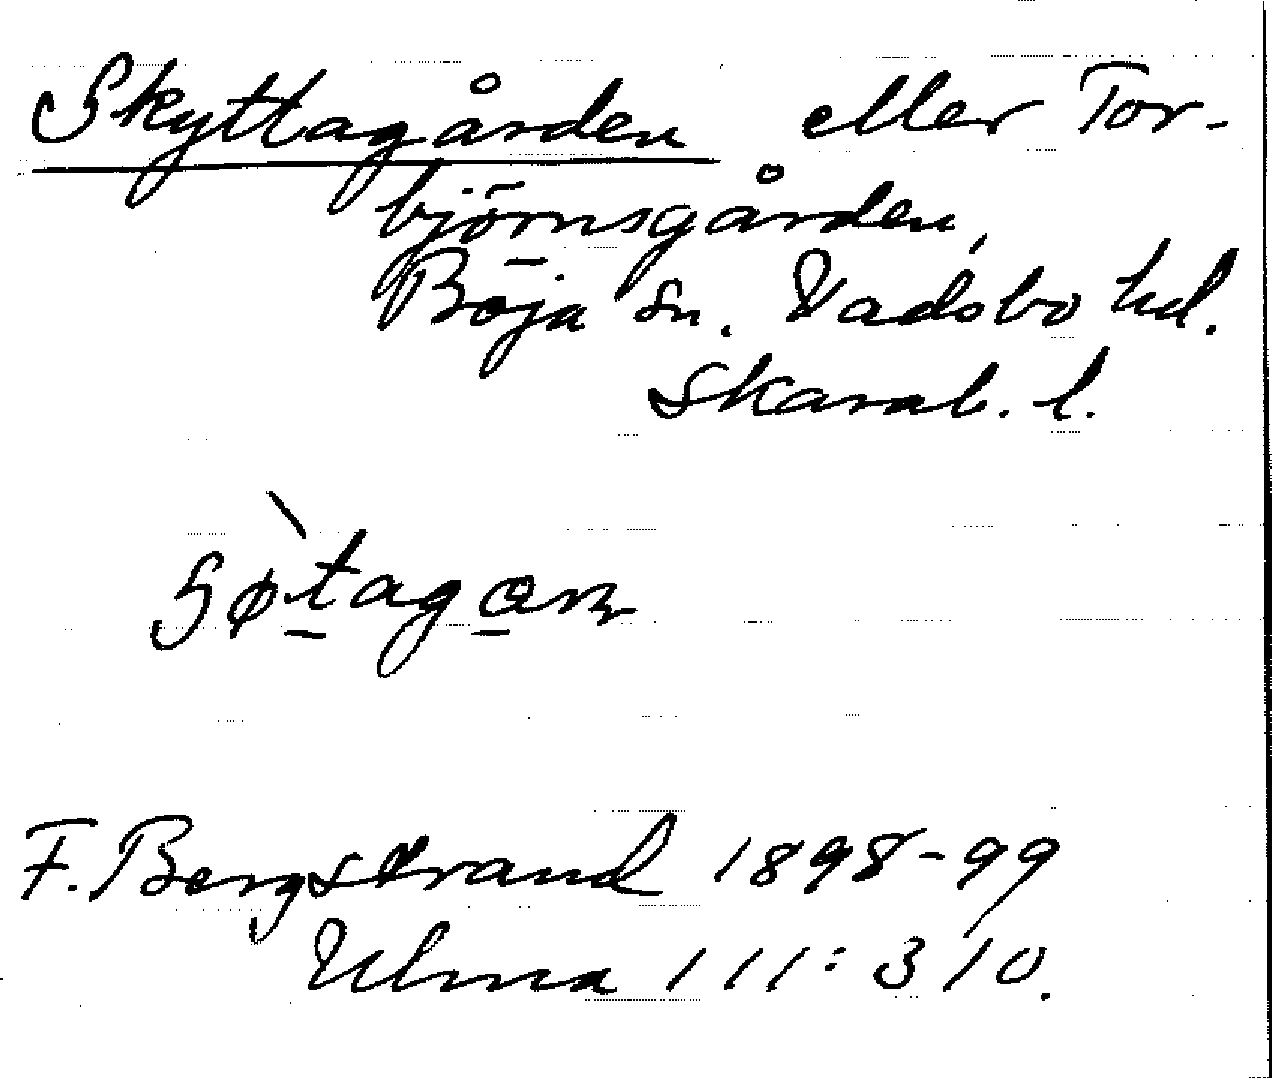 Skyttagården eller Tor-
björnsgården,
Böja sn. Vadsbo hd.
Skarab. l.
F. Bergstrand 1898-99
Ulma 111:310.